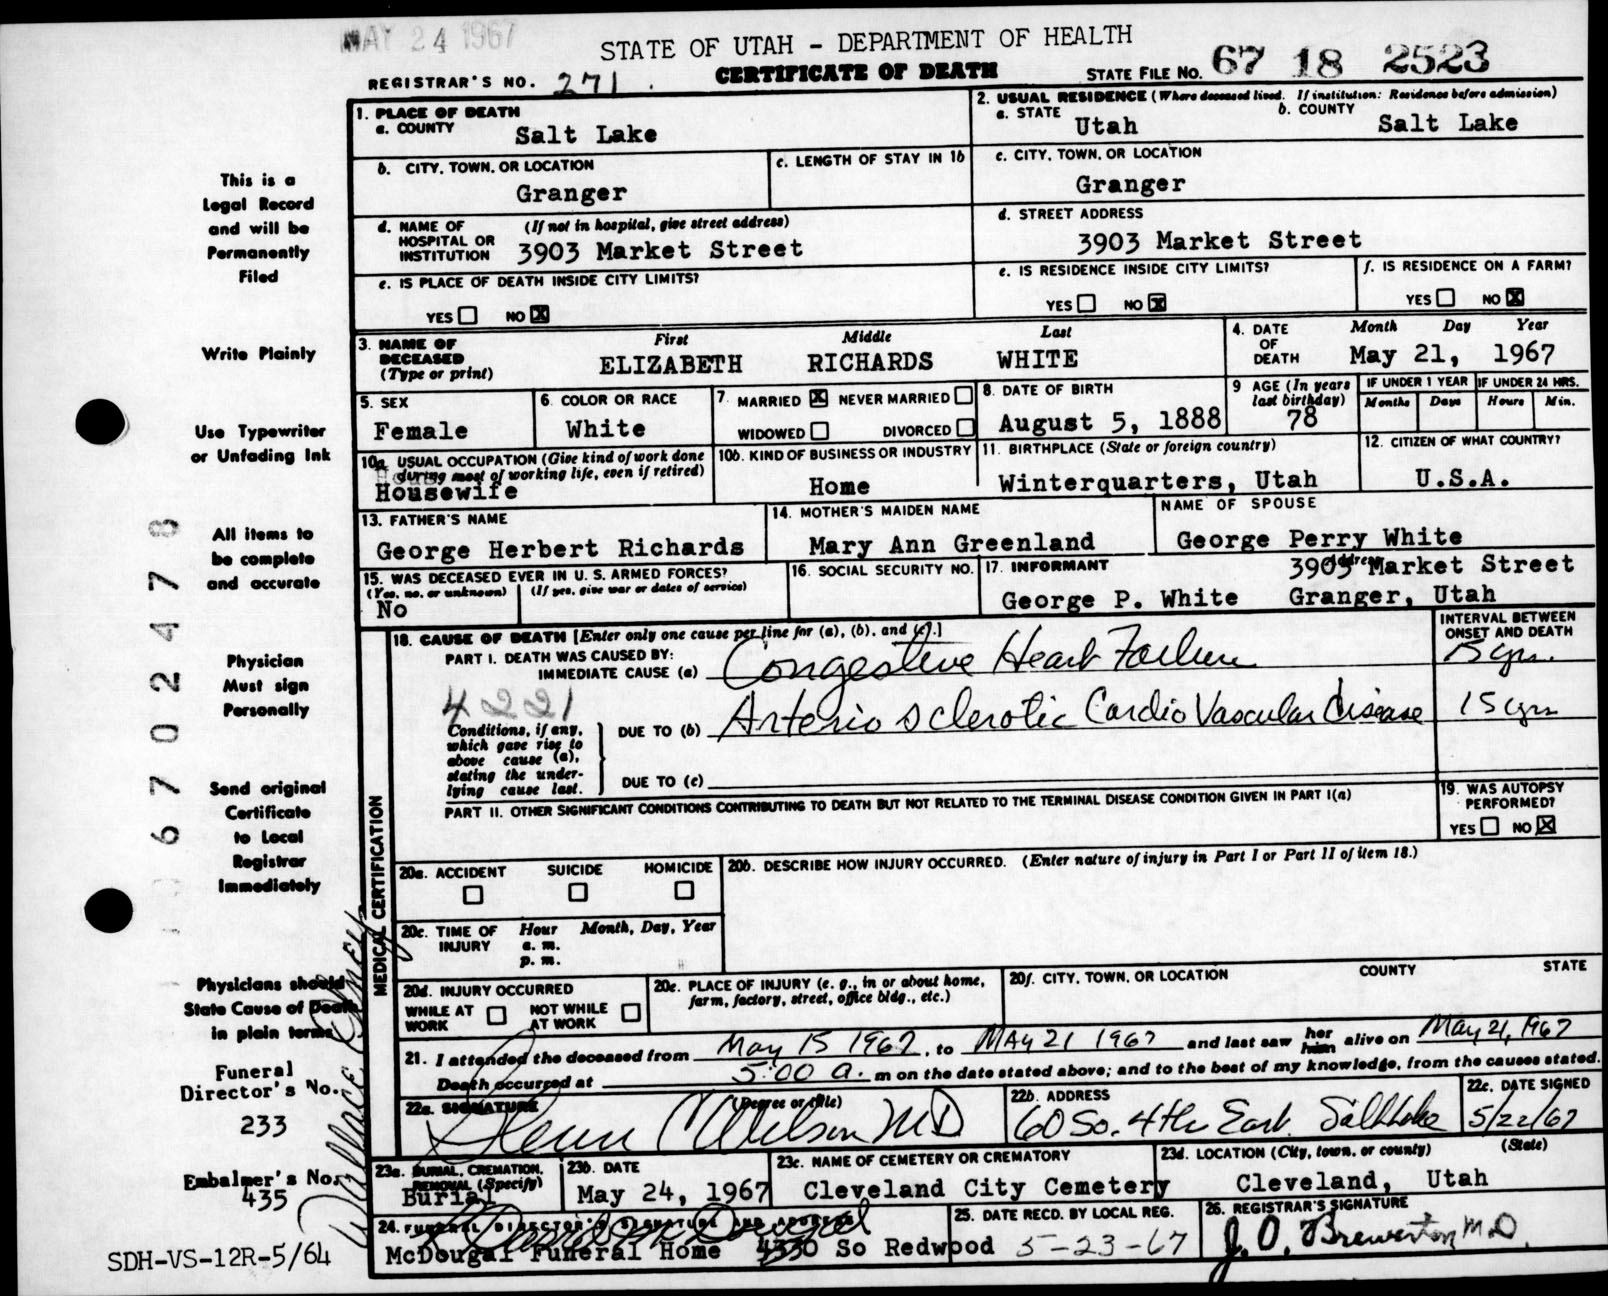 MAY 24 1967
STATE OF UTAH - DEPARTMENT OF HEALTH
REGISTRAR'S NO. 271. CERTIFICATE OF DEATH STATE FILE NO. 67 18 2523
1. PLACE OF DEATH
a. COUNTY Salt Lake
2. USUAL RESIDENCE (Where deceased lived. If institution: Residence before admission)
a. STATE Utah b. COUNTY Salt Lake
b. CITY, TOWN, OR LOCATION Granger
c. LENGTH OF STAY IN 1b
c. CITY, TOWN, OR LOCATION Granger
d. NAME OF HOSPITAL OR INSTITUTION (If not in hospital, give street address) 3903 Market Street
d. STREET ADDRESS 3903 Market Street
e. IS PLACE OF DEATH INSIDE CITY LIMITS?
YES NO X
e. IS RESIDENCE INSIDE CITY LIMITS?
YES NO X
f. IS RESIDENCE ON A FARM?
YES NO X
3. NAME OF DECEASED (Type or print)
First Middle Last
ELIZABETH RICHARDS WHITE
4. DATE OF DEATH
Month Day Year
May 21, 1967
5. SEX
Female
6. COLOR OR RACE
White
7. MARRIED X NEVER MARRIED
WIDOWED DIVORCED
8. DATE OF BIRTH
August 5, 1888
9 AGE (In years last birthday)
78
IF UNDER 1 YEAR
Months Days
IF UNDER 24 HRS.
Hours Min.
10a. USUAL OCCUPATION (Give kind of work done during most of working life, even if retired)
Housewife
10b. KIND OF BUSINESS OR INDUSTRY
Home
11. BIRTHPLACE (State or foreign country)
Winterquarters, Utah
12. CITIZEN OF WHAT COUNTRY?
U.S.A.
13. FATHER'S NAME
George Herbert Richards
14. MOTHER'S MAIDEN NAME
Mary Ann Greenland
NAME OF SPOUSE
George Perry White
15. WAS DECEASED EVER IN U. S. ARMED FORCES?
(Yes, no, or unknown) (If yes, give war or dates of service)
No
16. SOCIAL SECURITY NO.
17. INFORMANT Address
3903 Market Street
George P. White Granger, Utah
MEDICAL CERTIFICATION
18. CAUSE OF DEATH [Enter only one cause per line for (a), (b), and (c).]
INTERVAL BETWEEN ONSET AND DEATH
PART I. DEATH WAS CAUSED BY:
IMMEDIATE CAUSE (a) Congestive Heart Failure 5 yrs.
4221
Conditions, if any, which gave rise to above cause (a), stating the underlying cause last.
DUE TO (b) Arterio sclerotic Cardio Vascular disease 15 yrs
DUE TO (c)
PART II. OTHER SIGNIFICANT CONDITIONS CONTRIBUTING TO DEATH BUT NOT RELATED TO THE TERMINAL DISEASE CONDITION GIVEN IN PART I(a)
19. WAS AUTOPSY PERFORMED?
YES NO X
20a. ACCIDENT SUICIDE HOMICIDE
20b. DESCRIBE HOW INJURY OCCURRED. (Enter nature of injury in Part I or Part II of item 18.)
20c. TIME OF INJURY
Hour Month, Day, Year
a. m.
p. m.
20d. INJURY OCCURRED
WHILE AT WORK NOT WHILE AT WORK
20e. PLACE OF INJURY (e. g., in or about home, farm, factory, street, office bldg., etc.)
20f. CITY, TOWN, OR LOCATION COUNTY STATE
21. I attended the deceased from May 15 1967, to MAy 21 1967 and last saw her him alive on May 21, 1967
Death occurred at 5:00 a. m on the date stated above; and to the best of my knowledge, from the causes stated.
22a. SIGNATURE (Degree or title)
Glenn C Wilson MD
22b. ADDRESS
60 So. 4th East Salt Lake
22c. DATE SIGNED
5/22/67
23a. BURIAL, CREMATION, REMOVAL (Specify)
Burial
23b. DATE
May 24, 1967
23c. NAME OF CEMETERY OR CREMATORY
Cleveland City Cemetery
23d. LOCATION (City, town, or county) (State)
Cleveland, Utah
24. FUNERAL DIRECTOR'S SIGNATURE AND ADDRESS
McDougal Funeral Home 4330 So Redwood
25. DATE RECD. BY LOCAL REG.
5-23-67
26. REGISTRAR'S SIGNATURE
J. O. Brewerton M D.
This is a
Legal Record
and will be
Permanently
Filed
Write Plainly
Use Typewriter
or Unfading Ink
All items to
be complete
and accurate
Physician
Must sign
Personally
Send original
Certificate
to Local
Registrar
Immediately
Physicians should
State Cause of Death
in plain terms
Funeral
Director's No.
233
Embalmer's No.
435
SDH-VS-12R-5/64
67024778
Wallace